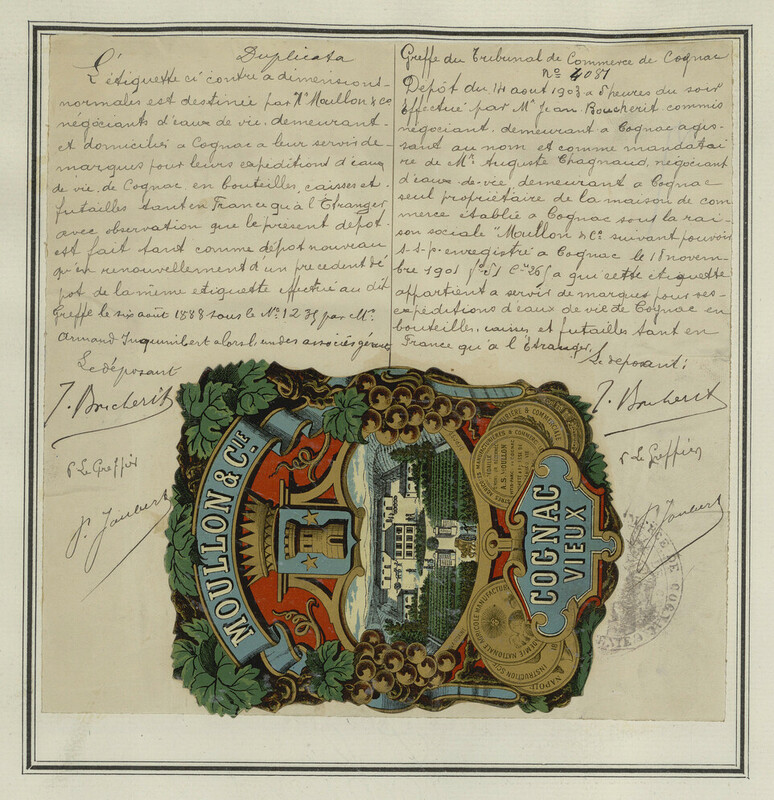 Duplicata
L'étiquette ci contre a dimensions
normales est destinée par Mr Moullon & Co
négociants d'eaux de vie, demeurant
et domiciliés a Cognac a leur servir de
marques pour leurs expéditions d'eaux
de vie de Cognac en bouteilles, caisses et
futailles tant en France qu'à l'Etranger
avec observation que le présent dépot
est fait tant comme dépot nouveau
qu'en renouvellement d'un precedent dé
pot de la même etiquette effectué au dit
Greffe le six août 1888 sous le No 1235 par Mr
Armand Inquimbert alors l'un des associés gérants
Le déposant
J. Boucherit
p Le Greffier
P. Jaubert
Greffe du Tribunal de Commerce de Cognac
No 4087
Dépôt du 14 aout 1903 a 5 heures du soir
Effectué par Mr Jean Boucherit commis
négociant, demeurant a Cognac agis-
sant au nom et comme mandatai
re de Mr Auguste Chagnaud, négociant
d'eaux-de-vie, demeurant a Cognac
seul propriétaire de la maison de com
merce établie a Cognac sous la rai-
son sociale "Moullon & Co suivant pouvoir
s-s-p. enregistré a Cognac le 18 novem-
bre 1901 fo 51 Co 36, a qui cette étiquette
appartient a servir de marques pour ses
expéditions d'eaux de vie de Cognac en
bouteilles, caisses et futailles tant en
France qu'à l'Etranger,
Le déposant:
J. Boucherit
p Le Greffier
P. Jaubert
MOULLON & CIE
COGNAC
VIEUX
A.S. MOULLON
ACADEMIE NATIONALE AGRICOLE MANUFACTURIERE & COMMERCIALE